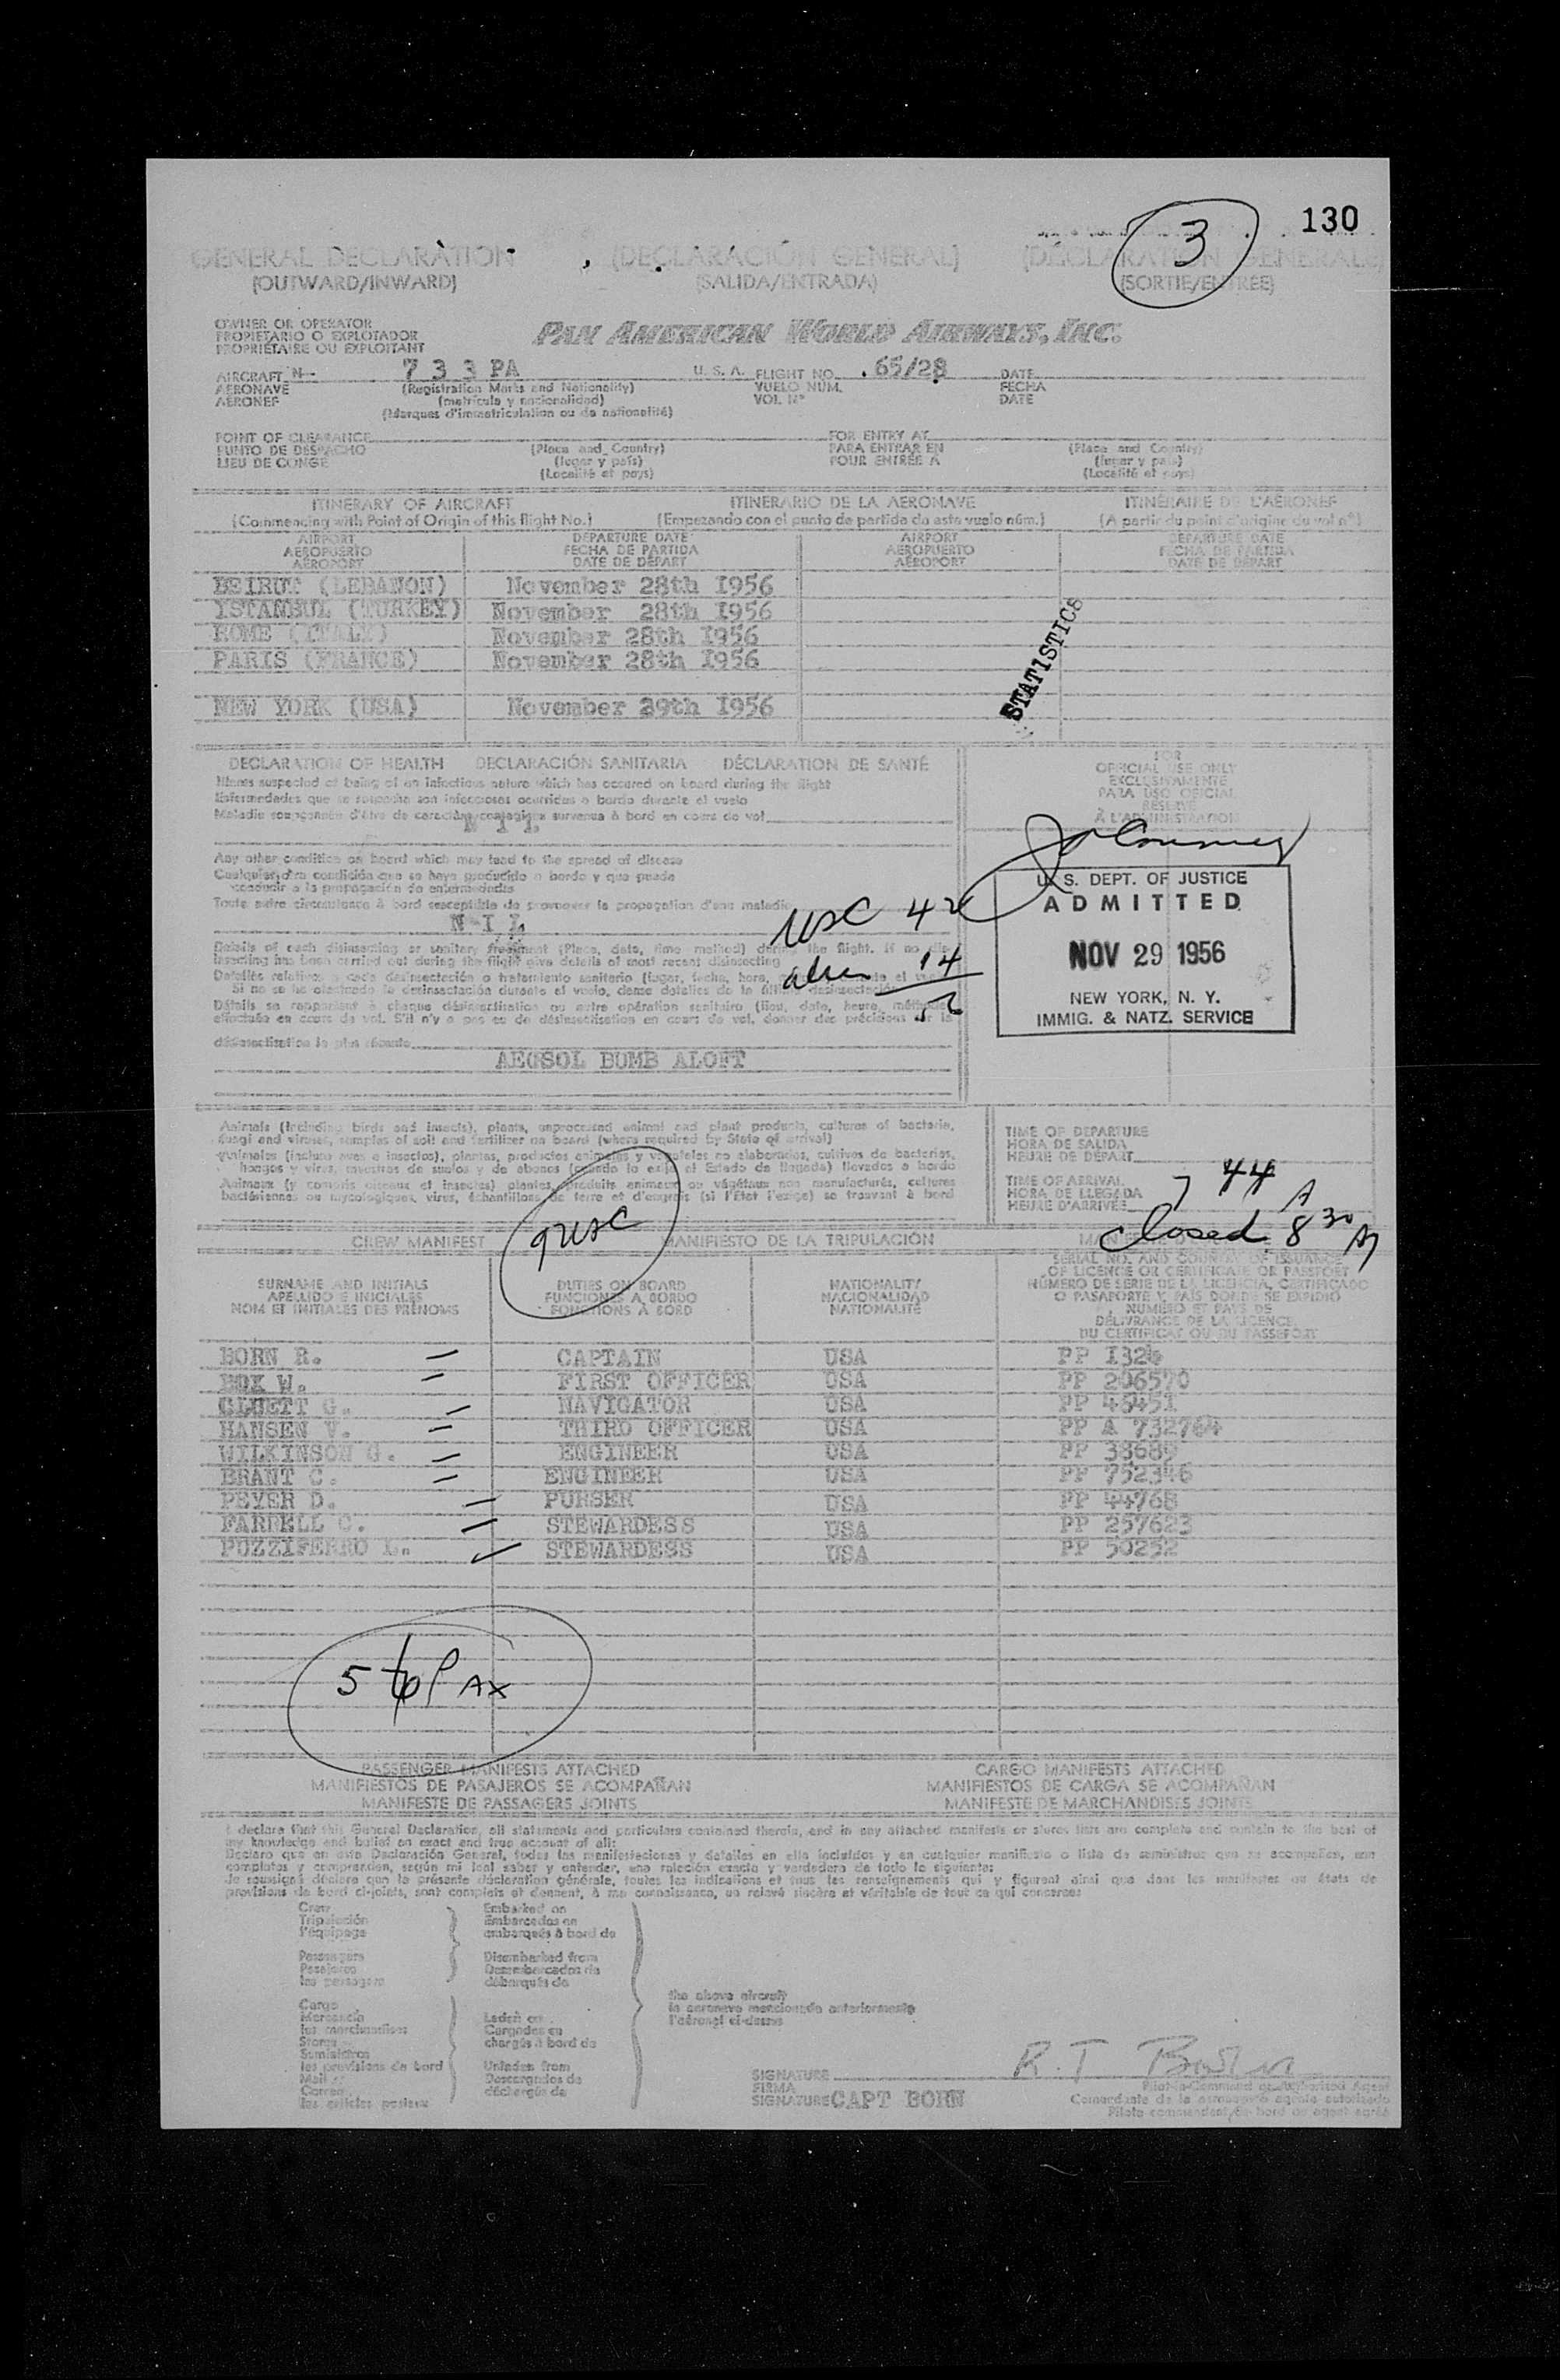 130
3
GENERAL DECLARATION (DECLARACIÓN GENERAL) (DÉCLARATION GÉNÉRALE)
(OUTWARD/INWARD) (SALIDA/ENTRADA) (SORTIE/ENTRÉE)
OWNER OR OPERATOR
PROPIETARIO O EXPLOTADOR
PROPRIÉTAIRE OU EXPLOITANT
PAN AMERICAN WORLD AIRWAYS, INC.
AIRCRAFT N- 733 PA U. S. A. FLIGHT NO. 65/28 DATE
AERONAVE (Registration Marks and Nationality) VUELO NÚM. FECHA
AÉRONEF (matrícula y nacionalidad) VOL Nº DATE
(Marques d'immatriculation ou de nationalité)
POINT OF CLEARANCE FOR ENTRY AT
PUNTO DE DESPACHO (Place and Country) PARA ENTRAR EN (Place and Country)
LIEU DE CONGÉ (lugar y país) POUR ENTRÉE À (lugar y país)
(Localité et pays) (Localité et pays)
ITINERARY OF AIRCRAFT ITINERARIO DE LA AERONAVE ITINÉRAIRE DE L'AÉRONEF
(Commencing with Point of Origin of this flight No.) (Empezando con el punto de partida de este vuelo núm.) (A partir du point d'origine du vol nº)
AIRPORT DEPARTURE DATE AIRPORT DEPARTURE DATE
AEROPUERTO FECHA DE PARTIDA AEROPUERTO FECHA DE PARTIDA
AÉROPORT DATE DE DÉPART AÉROPORT DATE DE DÉPART
BEIRUT (LEBANON) November 28th 1956
YSTANBUL (TURKEY) November 28th 1956
ROME (ITALY) November 28th 1956
PARIS (FRANCE) November 28th 1956
NEW YORK (USA) November 29th 1956
STATISTICS
DECLARATION OF HEALTH DECLARACIÓN SANITARIA DÉCLARATION DE SANTÉ
Illness suspected of being of an infectious nature which has occured on board during the flight
Enfermedades que se sospecha son infecciosas ocurridas a bordo durante el vuelo
Maladie soupçonnée d'être de caractère contagieux survenue à bord en cours de vol
N I L
FOR
OFFICIAL USE ONLY
EXCLUSIVAMENTE
PARA USO OFICIAL
RESERVÉ
À L'ADMINISTRATION
Any other condition on board which may lead to the spread of disease
Cualquier otra condición que se haya producido a bordo y que pueda
conducir a la propagación de enfermedades
Toute autre circonstance à bord susceptible de provoquer la propagation d'une maladie
N I L
USC 42
alien 14
U. S. DEPT. OF JUSTICE
ADMITTED
NOV 29 1956
NEW YORK, N. Y.
IMMIG. & NATZ. SERVICE
Details of each disinsecting or sanitary treatment (Place, date, time, method) during the flight. If no
insecting has been carried out during the flight give details of most recent disinsecting
Si no se ha efectuado la desinsectación durante el vuelo, dense detalles de la última desinsectación
Détails se rapportant à chaque désinsectisation ou autre opération sanitaire (lieu, date, heure,
effectuée en cours de vol. S'il n'y a pas eu de désinsectisation en cours de vol, donner des précisions sur la
désinsectisation la plus récente
AEOSOL BOMB ALOFT
Animals (Including birds and insects), plants, unprocessed animal and plant products, cultures of bacteria,
fungi and viruses, samples of soil and fertilizer on board (where required by State of arrival)
Animales (incluso aves e insectos), plantas, productos animales y vegetales no elaborados, cultivos de bacterias,
hongos y virus, muestras de suelos y de abonos (cuando lo exija el Estado de llegada) llevados a bordo
Animaux (y compris oiseaux et insectes) plantes, produits animaux ou végétaux non manufacturés, cultures
bactériennes ou mycologiques, virus, échantillons de terre et d'engrais (si l'État l'exige) se trouvant à bord
TIME OF DEPARTURE
HORA DE SALIDA
HEURE DE DÉPART
TIME OF ARRIVAL
HORA DE LLEGADA
HEURE D'ARRIVÉE
7 44 A
closed 8 30 A
9 USC
CREW MANIFEST MANIFIESTO DE LA TRIPULACIÓN
SURNAME AND INITIALS DUTIES ON BOARD NATIONALITY
APELLIDO E INICIALES FUNCIONES A BORDO NACIONALIDAD
NOM ET INITIALES DES PRÉNOMS FONCTIONS À BORD NATIONALITÉ
SERIAL NO. AND COUNTRY OF ISSUANCE
OF LICENSE OR CERTIFICATE OR PASSPORT
NÚMERO DE SERIE DE LA LICENCIA, CERTIFICADO
O PASAPORTE Y PAÍS DONDE SE EXPIDIÓ
NUMÉRO ET PAYS DE
DÉLIVRANCE DE LA LICENCE,
DU CERTIFICAT OU DU PASSEPORT
BORN R. CAPTAIN USA PP 1324
BOX W. FIRST OFFICER USA PP 206570
CLUETT G. NAVIGATOR USA PP 45451
HANSEN V. THIRD OFFICER USA PP A 732764
WILKINSON G. ENGINEER USA PP 38689
BRANT C. ENGINEER USA PP 752346
PEYER D. PURSER USA PP 44768
FARRELL C. STEWARDESS USA PP 257623
PUZZIFERRO L. STEWARDESS USA PP 50252
PAX
PASSENGER MANIFESTS ATTACHED CARGO MANIFESTS ATTACHED
MANIFIESTOS DE PASAJEROS SE ACOMPAÑAN MANIFIESTOS DE CARGA SE ACOMPAÑAN
MANIFESTE DE PASSAGERS JOINTS MANIFESTE DE MARCHANDISES JOINTS
I declare that this General Declaration, all statements and particulars contained therein, and in any attached manifests or stores lists are complete and contain to the best of
my knowledge and belief an exact and true account of all:
Declaro que en esta Declaración General, todas las manifestaciones y detalles en ella incluídos y en cualquier manifiesto o lista de suministros que se acompañen, son
completos y comprenden, según mi leal saber y entender, una relación exacta y verdadera de todo lo siguiente:
Je soussigné déclare que la présente déclaration générale, toutes les indications et tous les renseignements qui y figurent ainsi que dans les manifestes ou états de
provisions de bord ci-joints, sont complets et donnent, à ma connaissance, un relevé sincère et véritable de tout ce qui concerne:
Crew Embarked on
Tripulación Embarcados en
l'équipage embarqués à bord de
Passengers Disembarked from
Pasajeros Desembarcados de
les passagers débarqués de
the above aircraft
la aeronave mencionada anteriormente
l'aéronef ci-dessus
Cargo
Mercancía Laden on
les marchandises Cargados en
Stores chargés à bord de
Suministros
les provisions de bord Unladen from
Mail Descargados de
Correo déchargés de
les articles postaux
SIGNATURE R. T. Born
FIRMA
SIGNATURE CAPT BORN
Pilot-in-Command or Authorized Agent
Comandante de la aeronave o agente autorizado
Pilote commandant de bord ou agent agréé